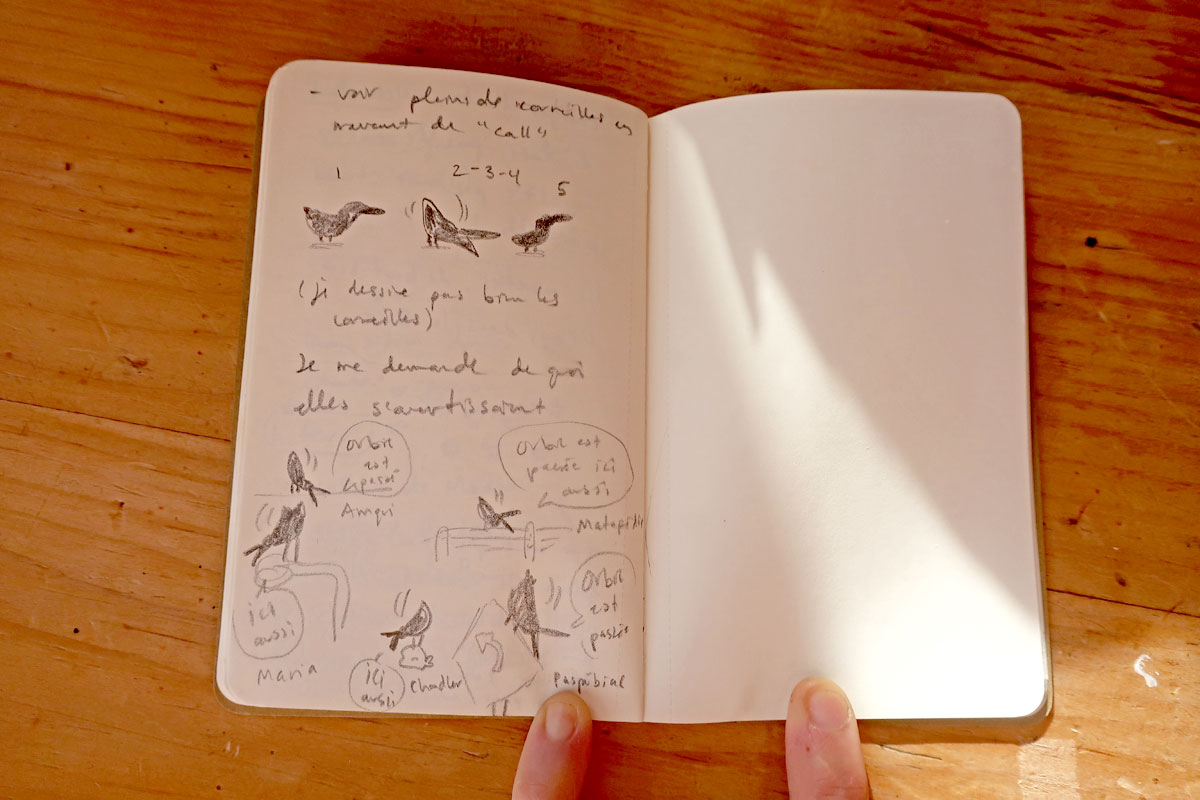 - voir pleins de corneilles en
travers de "call"
1 2-3-4 5
(je dessine pas bien les
corneilles)
Je me demande de quoi
elles s'avertissaient
est
passé
Amqui
est
passée ici
aussi
Matapédia
ici
aussi
Maria
ici
aussi
Chandler
est
passée
Paspébiac